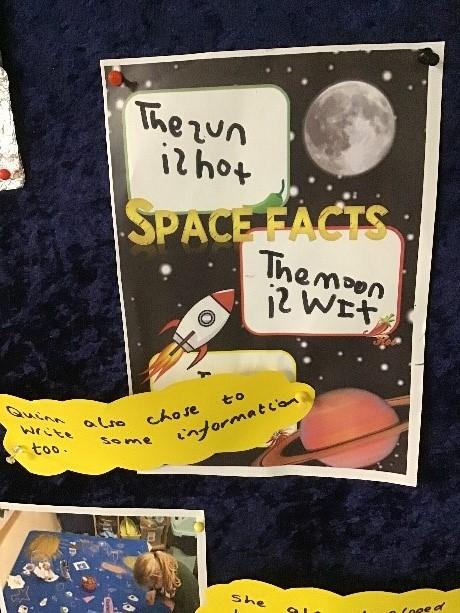 The sun
is hot
SPACE FACTS
The moon
is WIt
Quinn also chose to
write some information
too.
She also